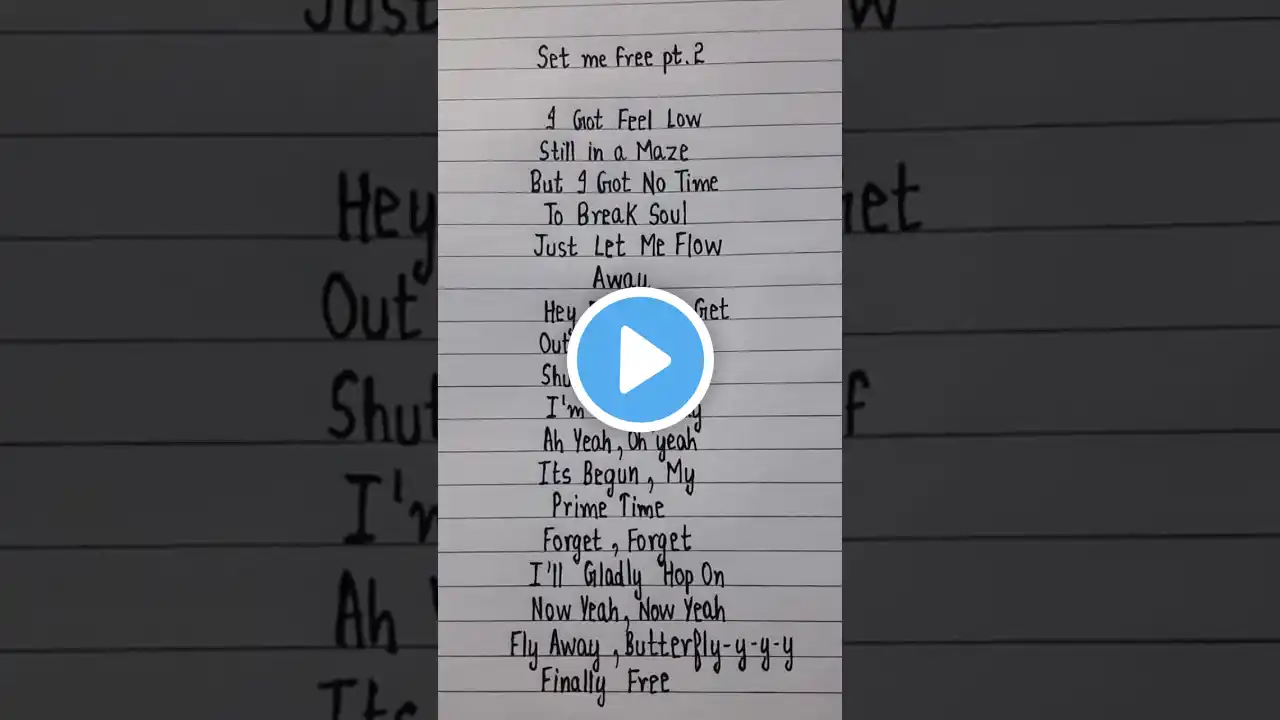 Set me free pt.2
I Got Feel Low
Still in a Maze
But I Got No Time
To Break Soul
Just Let Me Flow
Away
Hey Get
Out
I'm
Ah Yeah, Oh yeah
Its Begun, My
Prime Time
Forget, Forget
I'll Gladly Hop On
Now Yeah, Now Yeah
Fly Away, Butterfly-y-y-y
Finally Free